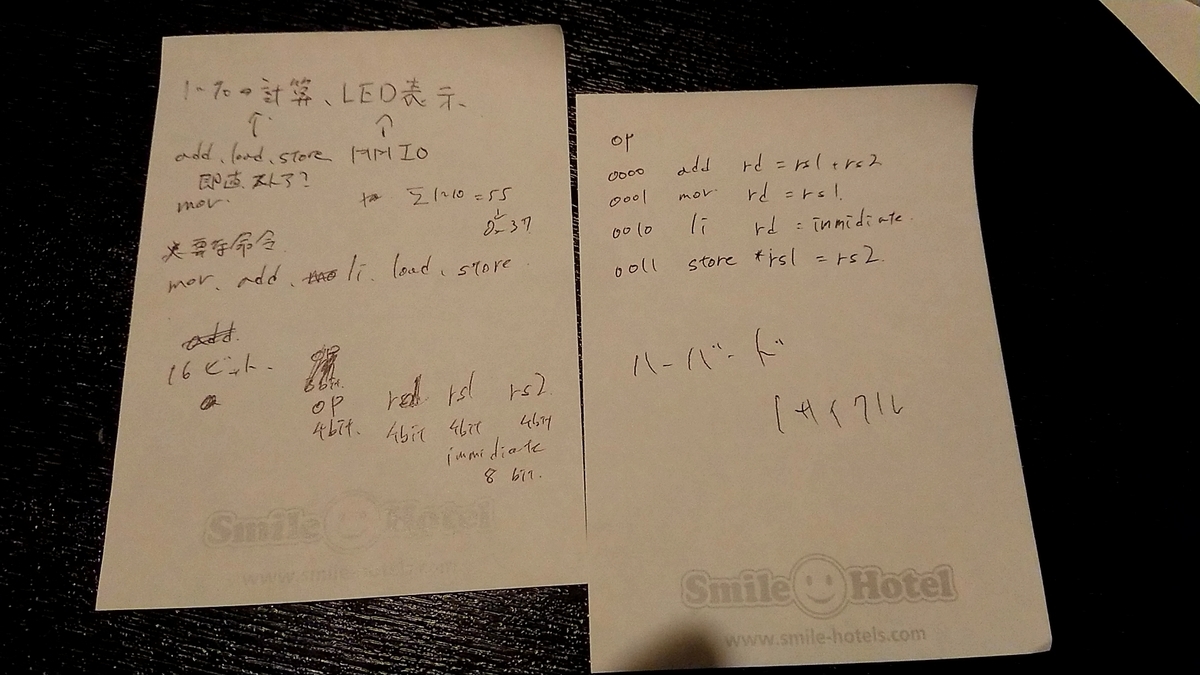 1~10の計算、LED表示、
↑ ↑
add、load、store MMIO
即値ストア?
mov.
Σ1~10 = 55
0x37
必要な命令
mov、add、li、load、store
add.
16ビット
6bit.
op rd rs1 rs2
4bit. 4bit 4bit 4bit
immidiate
8 bit.
Smile Hotel
www.smile-hotels.com
op
0000 add rd = rs1 + rs2
0001 mov rd = rs1.
0010 li rd = inmidiate.
0011 store *rs1 = rs2.
ハーバード
1サイクル
Smile Hotel
www.smile-hotels.com